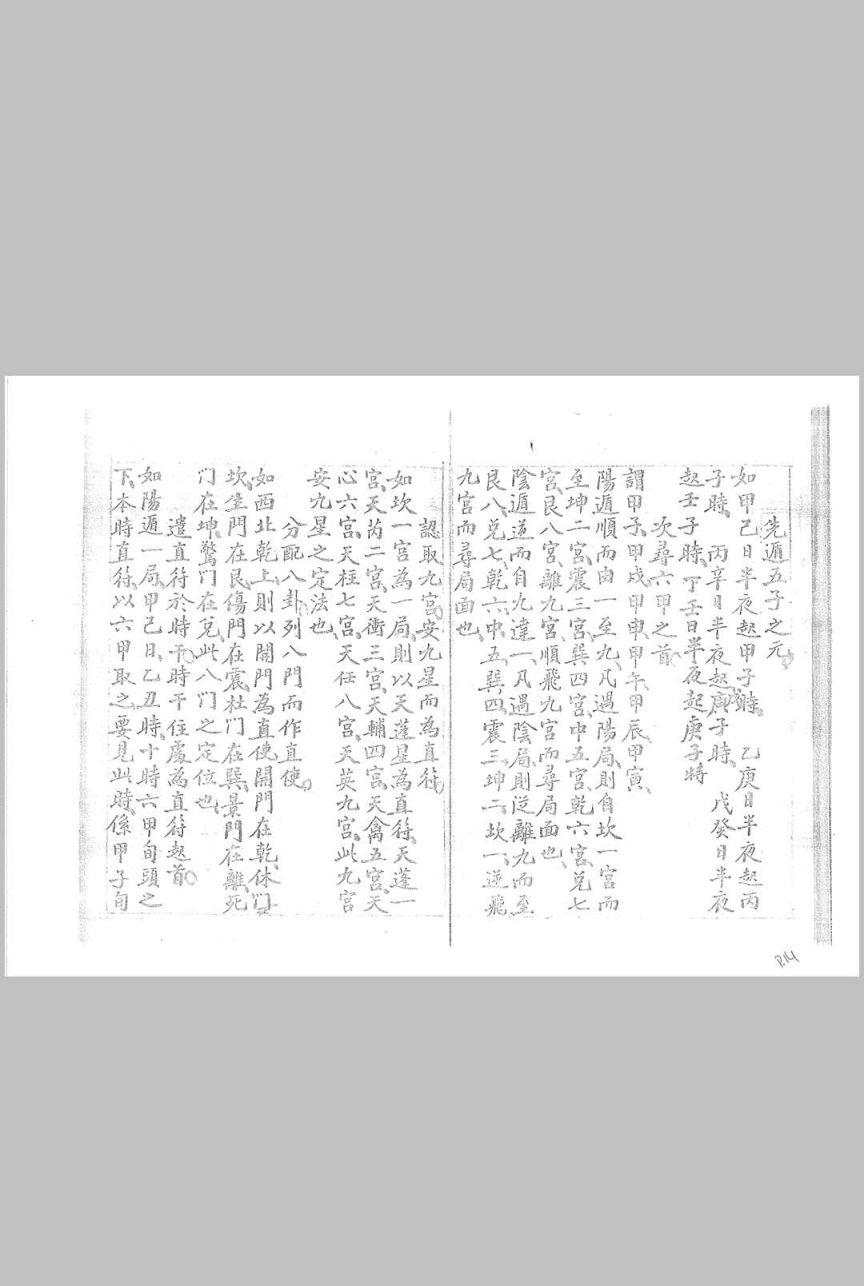 先遁五子之元。
如甲己日半夜起甲子時。 乙庚日半夜起丙
子時、 丙辛日半夜起戊子時、 戊癸日半夜
起壬子時、丁壬日半夜起庚子時
次尋六甲之首
謂甲子、甲戌甲申甲午甲辰甲寅、
陽遁順而由一至九、凡遇陽局、則自坎一宮而
至坤二宮、震三宮、巽四宮、中五宮、乾六宮、兌七
宮、艮八宮、離九宮、順飛九宮而尋局面也、
陰遁逆而自九達一、凡遇陰局、則從離九而至
艮八、兌七、乾六、中五、巽四、震三、坤二、坎一、逆飛
九宮而尋局面也、
認取九宮、安九星而為直符、
如坎一宮為一局、則以天蓬星為直符、天蓬一
宮、天芮二宮、天衝三宮、天輔四宮、天禽五宮、天
心六宮、天柱七宮、天任八宮、天英九宮、此九宮
安九星之定法也、
分配八卦、列八門而作直使。
如西北乾上、則以開門為直使、開門在乾、休门
坎、生門在艮、傷門在震、杜门在巽、景門在離、死
门在坤、驚门在兌、此八门之定位也、
遣直符於時干、時干住處為直符起首。
如陽遁一局、甲己日、乙丑時、十時六甲旬頭之
下、本時直符、以六甲取之、要見此時、係甲子旬
P.14